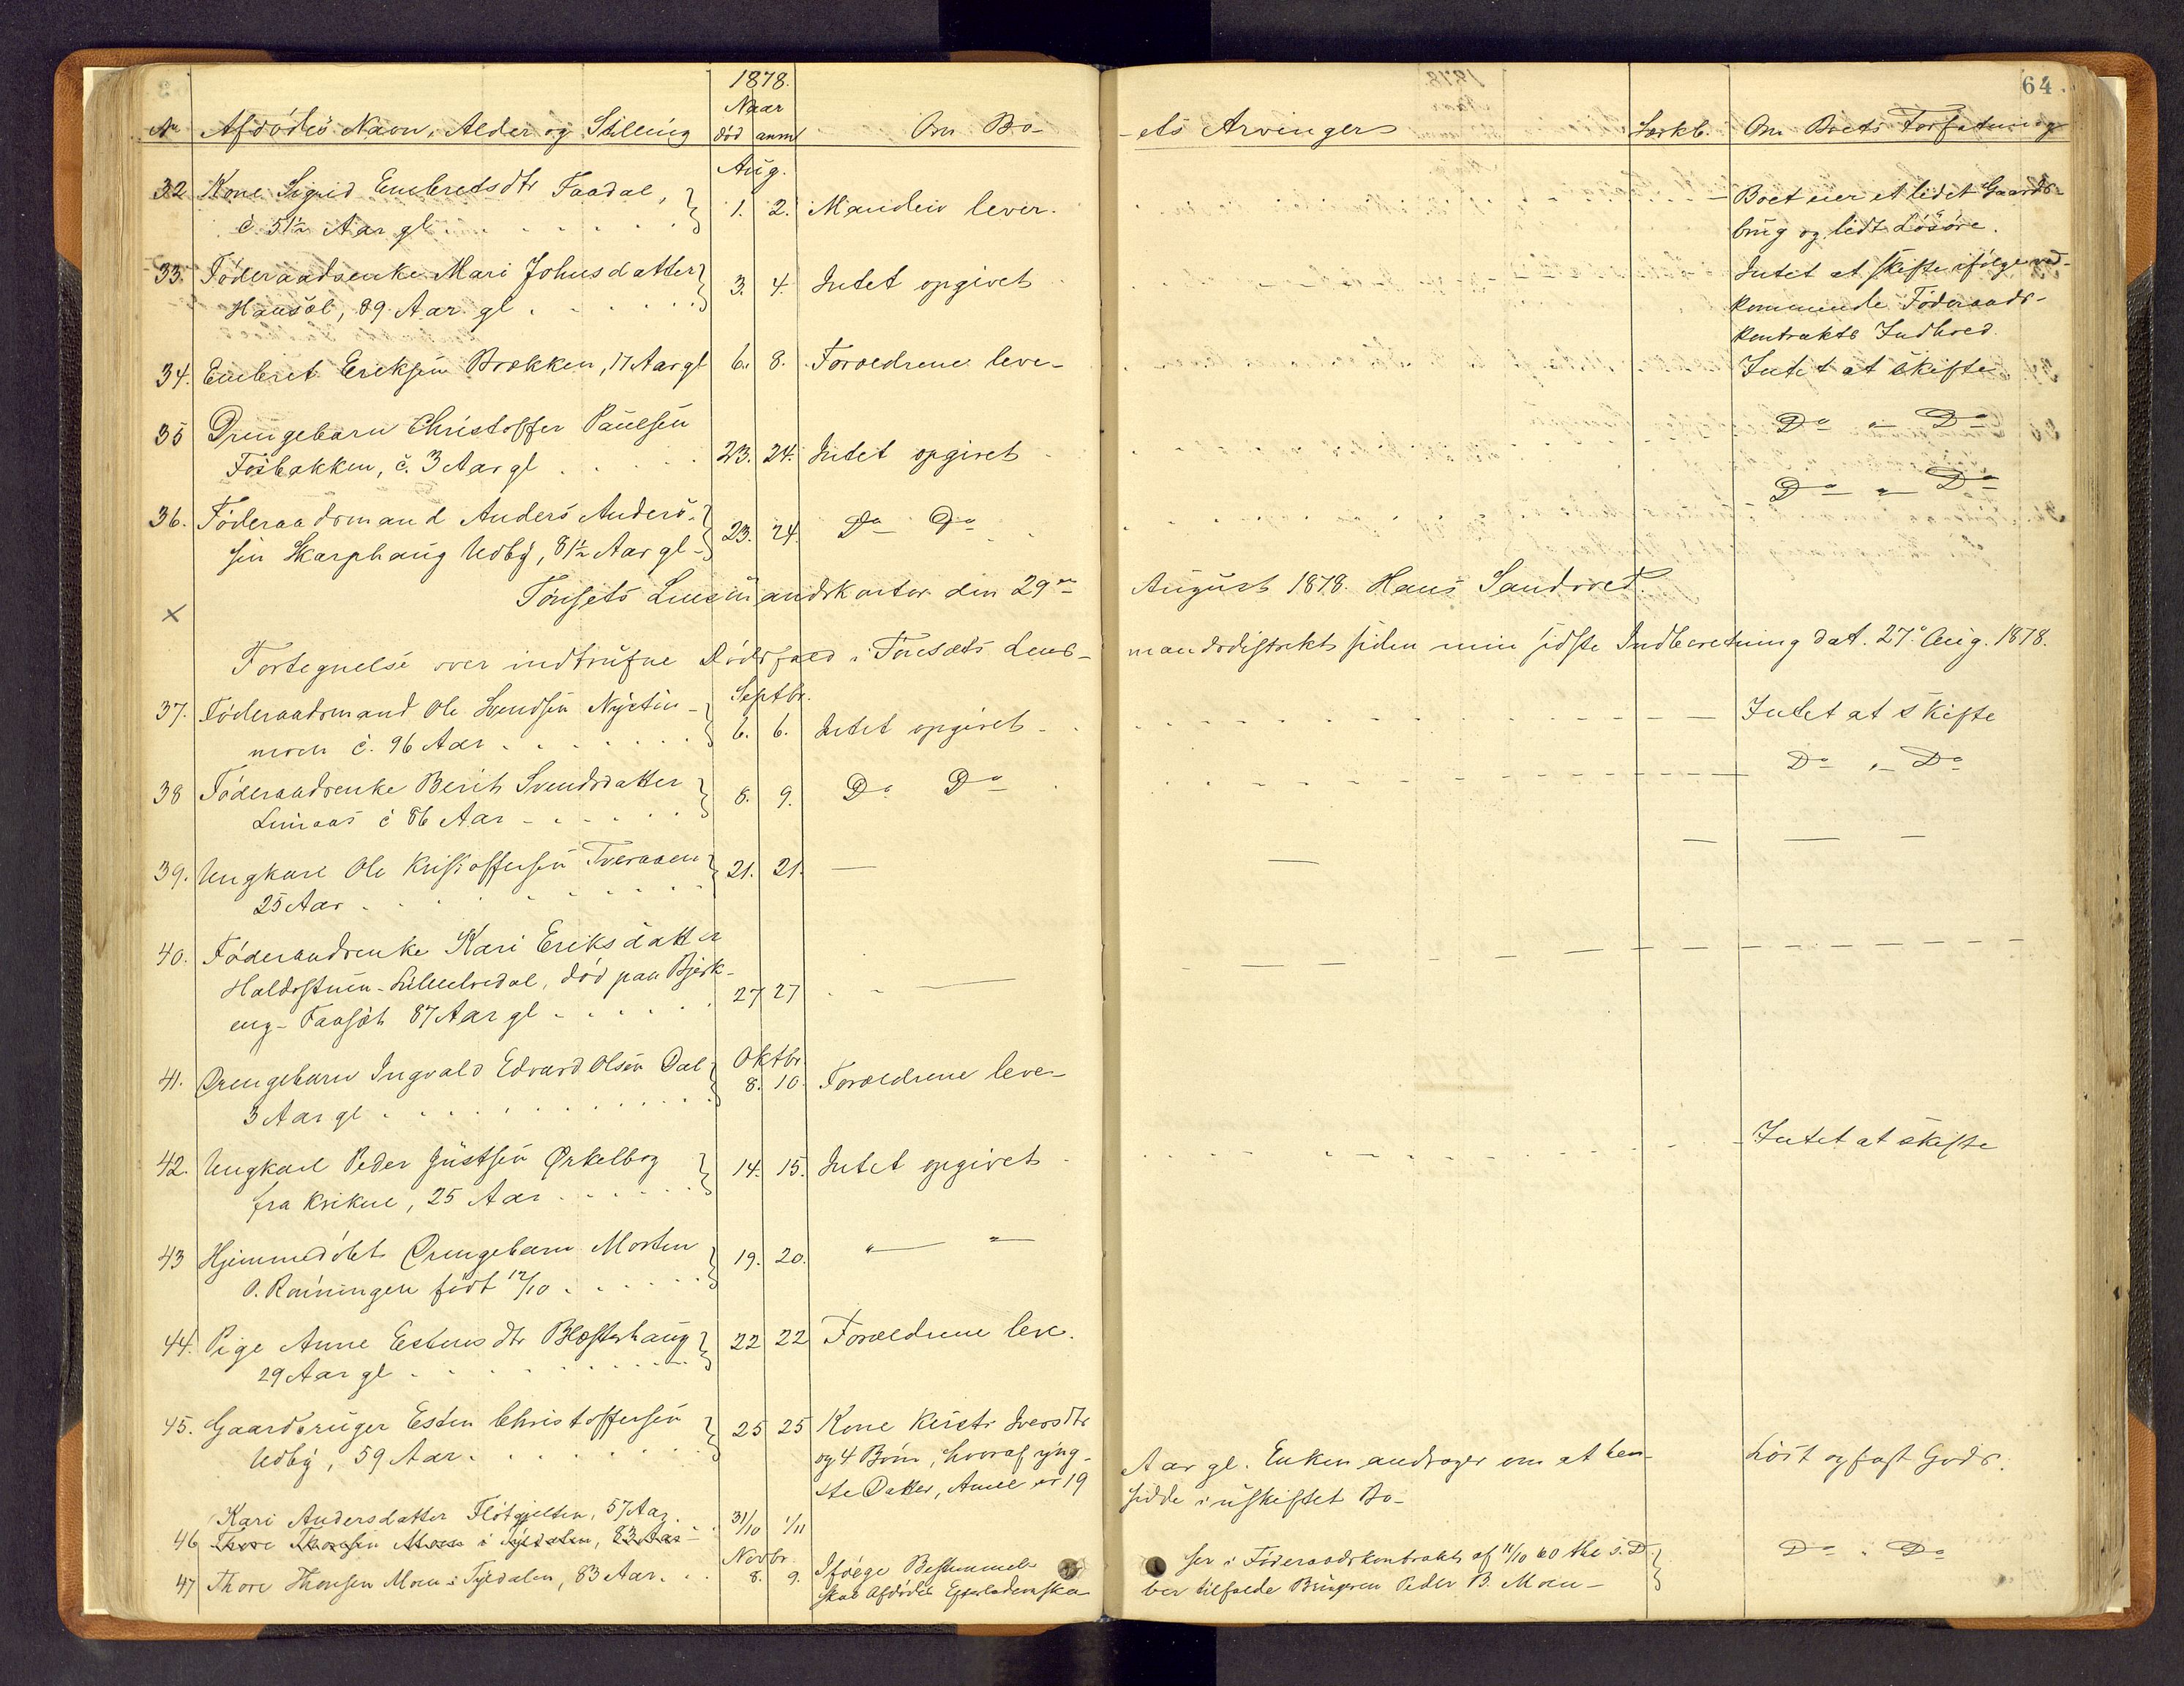 1878.
64.
Nr Afdødes Navn, Alder og Stilling
Naar
død anm
Om Bo-
-ets Arvinger
Særkb.
Om Boets Forfatning
Aug.
32 Kone Sigrid Embretsdtr Faadal,
c. 51½ Aar gl
1. 2. Manden lever.
Boet eier et lidet Gaards-
brug og lidt Løsøre.
33. Føderaadsenke Mari Johnsdatter
Hansøl, 89 Aar gl
3. 4. Intet opgivet
Intet at skifte ifølge ved-
kommende Føderaads-
kontrakts Indhold
34. Embret Eriksen Brækken, 17 Aar gl
6. 8. Forældrene leve-
Intet at skifte
35 Drengebarn Christoffer Paulsen
Fosbakken, c. 3 Aar gl
23. 24. Intet opgivet
Do " Do
36. Føderaadsmand Anders Anders-
sen Skarphaug Udby, 81½ Aar gl
23. 24. Do Do
Do " Do
Tønsets Lensmandskontor den 29de August 1878. Hans Sandvoed.
×
Fortegnelse over indtrufne Dødsfald i Tønsæts Lens-
mandsdistrikt siden min sidste Indberetning dat. 27de Aug. 1878.
Septbr.
37. Føderaadsmand Ole Svendsen Nystu-
moen c. 96 Aar
6. 6. Intet opgivet
Intet at skifte
38 Føderaadsenke Berit Svendsdatter
Lunaas c 86 Aar
8. 9. Do Do
Do " Do
39. Ungkarl Ole Kristoffersen Tveraaen
25 Aar
21. 21. —
40. Føderaadsenke Kari Eriksdatter
Haldostuen-Lilleelvedal, død paa Bjørk-
eng-Faasæt 87 Aar gl
27 27
Oktbr.
41. Drengebarn Ingvald Edvard Olsen Dal
3 Aar gl
8. 10. Forældrene leve-
42. Ungkarl Peder Justsen Ørkelbog
fra Kvikne, 25 Aar
14. 15. Intet opgivet
Intet at skifte
43 Hjemmedøbt Drengebarn Morten
O. Rønningen født 12/10
19. 20. " "
44. Pige Anne Estensdtr Blæsterhaug
29 Aar gl
22 22 Forældrene leve.
45. Gaardbruger Esten Christoffersen
Udby, 59 Aar.
25 25 Kone Kirsti Iversdtr
og 4 Børn, hvoraf yng-
ste Datter, Anne er 19
Aar gl. Enken andrager om at hen-
sidde i uskiftet Bo-
Løst og fast Gods.
Kari Andersdatter Fløtgjelten, 57 Aar.
31/10 1/11
46 Thore Thoresen Moen i Tyldalen, 83 Aar
Novbr.
47 Thore Thoresen Moen i Tyldalen, 83 Aar.
8. 9. Ifølge Bestemmel-
skal Afdødes Efterladenska
ser i Føderaadskontrakt af 11/10 60 thl s. D
ber tilfalde Brugeren Peder B. Moen-
Do " Do